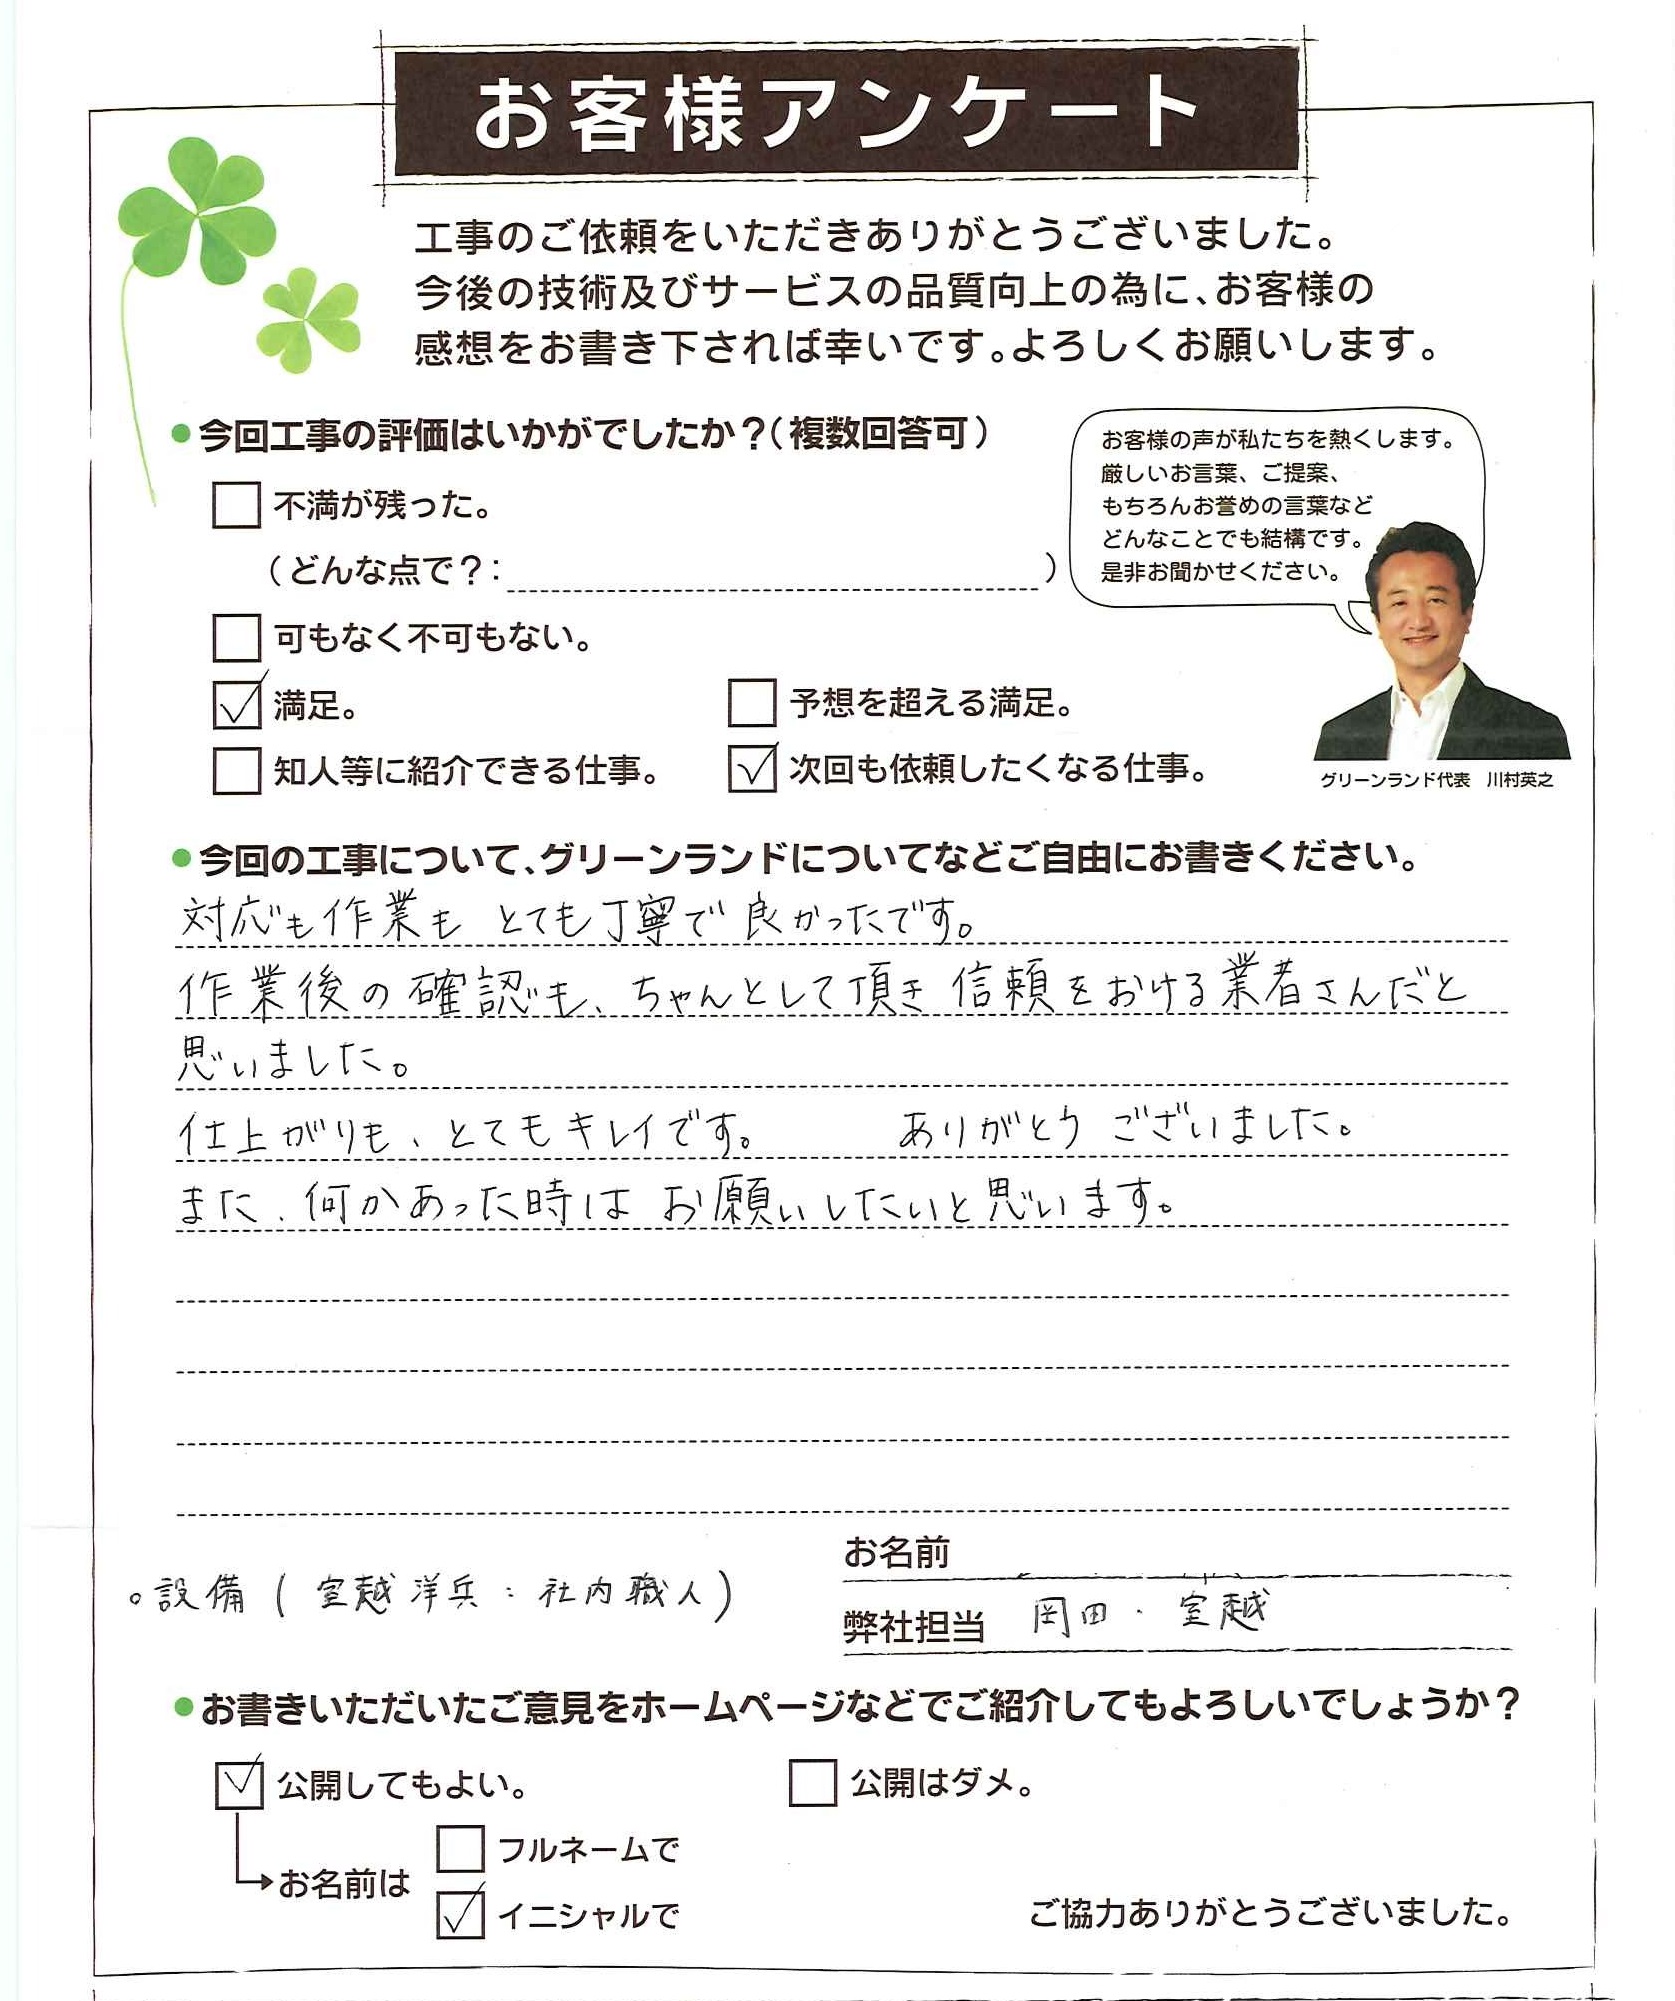 お客様アンケート
工事のご依頼をいただきありがとうございました。
今後の技術及びサービスの品質向上の為に、お客様の
感想をお書き下されば幸いです。よろしくお願いします。
●今回工事の評価はいかがでしたか？（複数回答可）
お客様の声が私たちを熱くします。
厳しいお言葉、ご提案、
もちろんお誉めの言葉など
どんなことでも結構です。
是非お聞かせください。
不満が残った。
（どんな点で？：　）
可もなく不可もない。
満足。
予想を超える満足。
知人等に紹介できる仕事。
次回も依頼したくなる仕事。
グリーンランド代表　川村英之
●今回の工事について、グリーンランドについてなどご自由にお書きください。
対応も作業も とても丁寧で 良かったです。
作業後の確認も、ちゃんとして頂き 信頼をおける業者さんだと
思いました。
仕上がりも、とてもキレイです。　ありがとう ございました。
また、何かあった時は お願いしたいと思います。
お名前
。設備（室越洋兵：社内職人）
弊社担当　岡田・室越
●お書きいただいたご意見をホームページなどでご紹介してもよろしいでしょうか？
公開してもよい。
公開はダメ。
フルネームで
お名前は
イニシャルで
ご協力ありがとうございました。